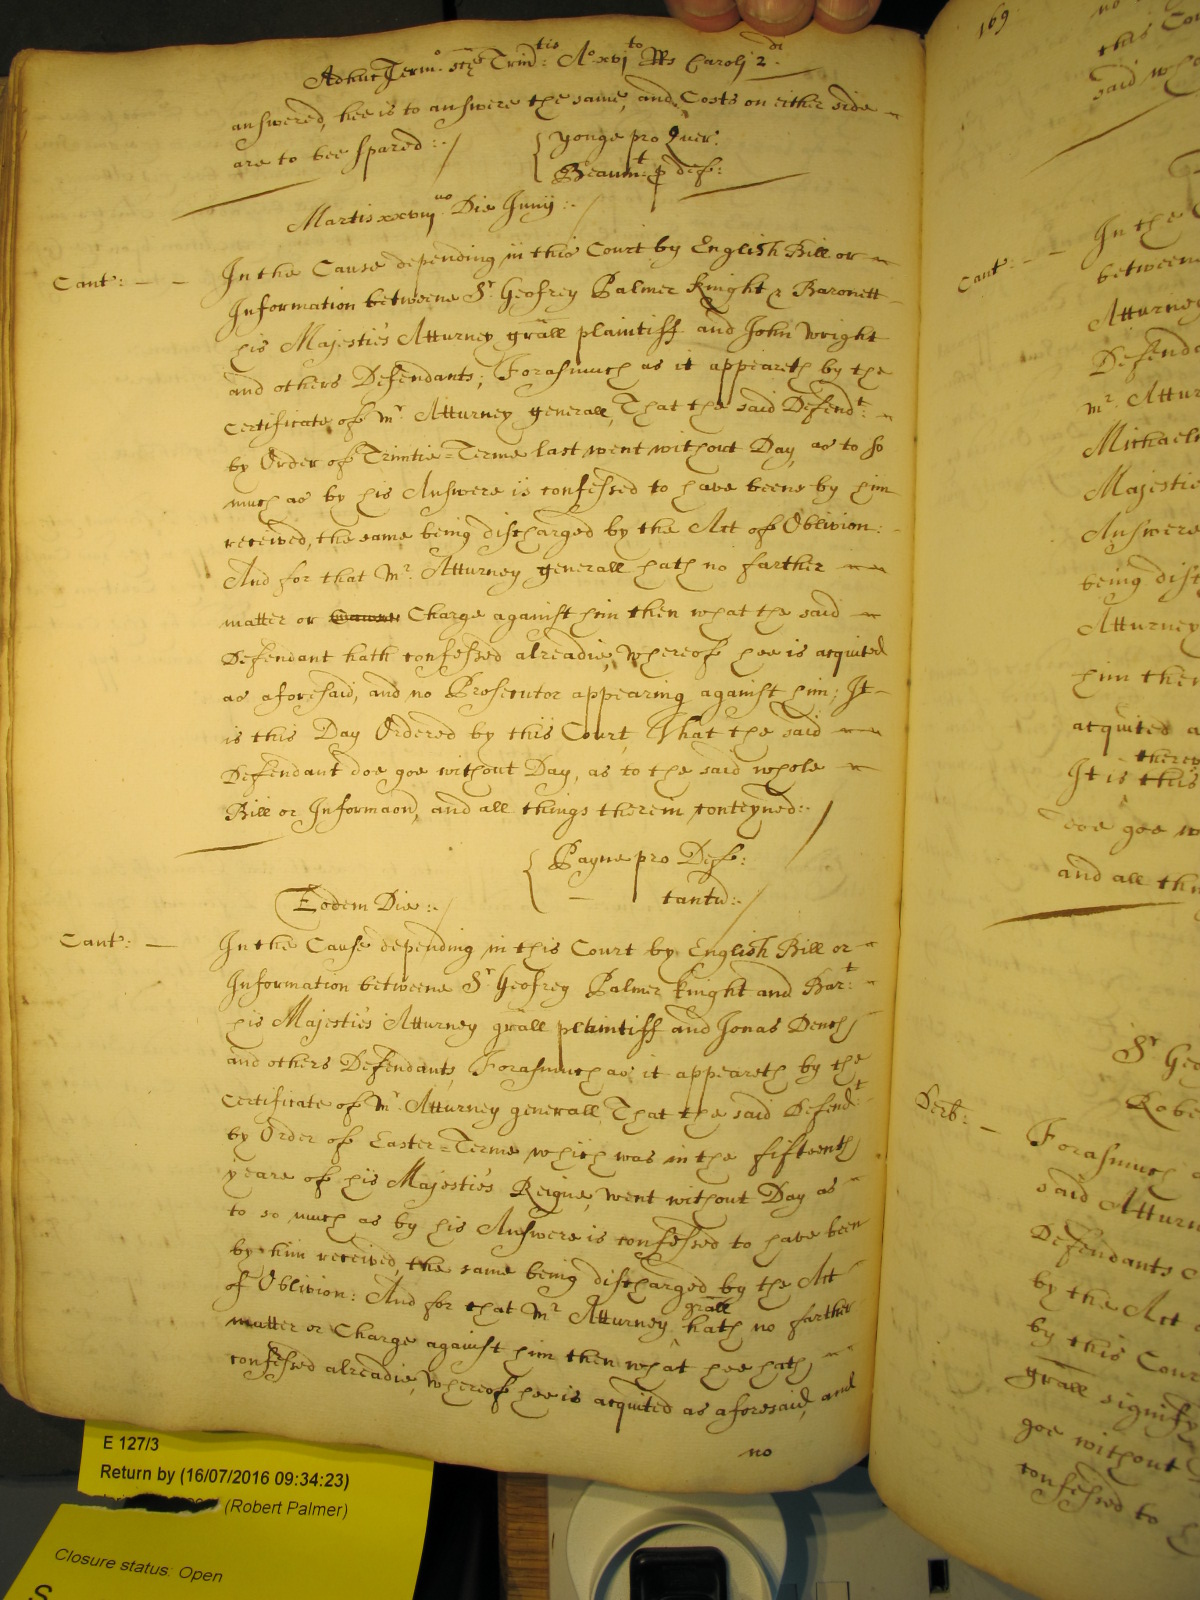 Adhuc Termo. scẽ Trintis: Ao. xvjto RRs Caroli 2di.
answered, hee is to answere the same, and Costs on either side
are to bee spared:
Yonge pro Quer:
Beaumt. p def:
Martis xxviijuo Die Junij:
Cant: In the Cause depending in this Court by English Bill or
Information betweene Sr. Geofrey Palmer Knight & Baronett
his Majesties Atturney grãll plaintiff and John Wright
and others Defendants; Forasmuch as it appeareth by the
Certificate of Mr. Atturney generall, That the said Defendt:
by Order of Trinitie=Terme last went without Day, as to so
much as by his Answere is confessed to have beene by him
received, the same being discharged by the Act of Oblivion:
And for that Mr. Atturney generall hath no farther
matter or Charge against him then what the said
Defendant hath confessed alreadie, whereof hee is acquited
as aforesaid, and no Prosecutor appearing against him; It
is this Day Ordered by this Court, That the said
Defendant doe goe without Day, as to the said whole
Bill or Informaõn, and all things therein conteyned:
Payne pro Def:
tantũ:
Eodem Die:
Cant: In the Cause depending in this Court by English Bill or
Information betweene Sr. Geofrey Palmer Knight and Bart:
his Majesties Atturney grãll plaintiff and Jonas Dench
and others Defendants, Forasmuch as it appeareth by the
Certificate of Mr. Atturney generall, That the said Defendt:
by Order of Easter=Terme which was in the fifteenth
yeare of his Majesties Reigne, went without Day as
to so much as by his Answere is confessed to have been
by him received, the same being discharged by the Act
of Oblivion: And for that Mr. Atturney grãll hath no farther
matter or Charge against him then what hee hath
confessed alreadie, whereof hee is acquited as aforesaid, and
no
169
no
this Cou
said wh
Cant:
In the
betweene
Atturney
Defenda
Mr. Attur
Michaelm
Majestie
Answere
being disc
Atturney
him then
acquited a
It is this
doe goe w
and all thin
Sr Geo
Robe
Derb: Forasmuch
said Atturn
Defendants
by the Act
by this Cour
grãll signify
goe without
confessed to
E 127/3
Return by (16/07/2016 09:34:23)
(Robert Palmer)
Closure status: Open
S